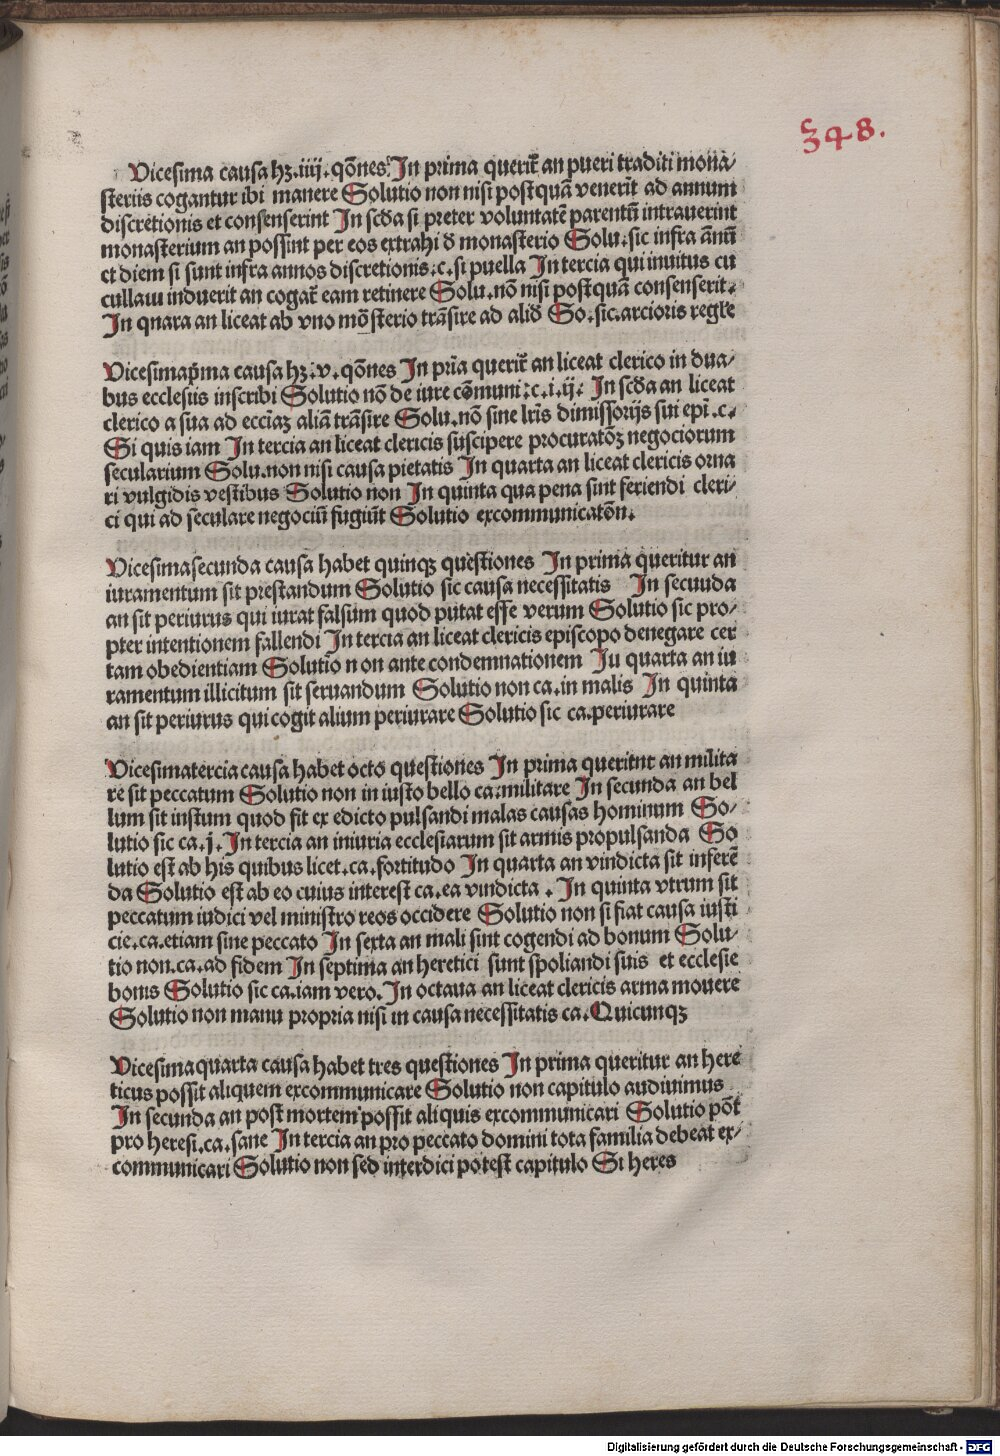 348.
Vicesima causa hꝫ.iiij.qōnes. In prima querit̄ an pueri traditi mona/
steriis cogantur ibi manere Solutio non nisi postquā venerīt ad annum
discretionis et consenserint In scd̄a si preter voluntatē parentū intrauerint
monasterium an possint per eos extrahi d̄ monasterio Solu.sic infra ānū
et diem si sunt infra annos discretionis.c.si puella In tercia qui inuitus cu
cullam induerit an cogat̄ eam retinere Solu.nō nisi postquā consenserit.
In qnara an liceat ab vno mōsterio trāsire ad alid̄ So.sic.arcioris regl̄e
Vicesimap̄ma causa hꝫ.v.qōnes In pr̄ia querit̄ an liceat clerico in dua/
bus ecclesiis inscribi Solutio nō de iure cōmuni.c.i.ij. In scd̄a an liceat
clerico a sua ad eccīaꝫ aliā trāsire Solu.nō sine lr̄is dimissorijs sui ep̄i.c.
Si quis iam In tercia an liceat clericis suscipere procuratōꝫ negociorum
secularium Solu.non nisi causa pietatis In quarta an liceat clericis orna
ri vulgidis vestibus Solutio non In quinta qua pena sint feriendi cleri/
ci qui ad seculare negociū fugiūt Solutio excommunicatōn.
Vicesimasecunda causa habet quinqꝫ questiones In prima queritur an
iuramentum sit prestandum Solutio sic causa necessitatis In secuuda
an sit periurus qui iurat falsum quod putat esse verum Solutio sic pro/
pter intentionem fallendi In tercia an liceat clericis episcopo denegare cer
tam obedientiam Solutio n on ante condemnationem Iu quarta an iu
ramentum illicitum sit seruandum Solutio non ca.in malis In quinta
an sit periurus qui cogit alium periurare Solutio sic ca.periurare
Vicesimatercia causa habet octo questiones In prima queritnr an milita
re sit peccatum Solutio non in iusto bello ca.militare In secunda an bel
lum sit instum quod fit ex edicto pulsandi malas causas hominum So/
lutio sic ca.j. In tercia an iniuria ecclesiarum sit armis propulsanda So
lutio est ab his quibus licet.ca.fortitudo In quarta an vindicta sit inferē
da Solutio est ab eo cuius interest ca.ea vindicta . In quinta vtrum sit
peccatum iudici vel ministro reos occidere Solutio non si fiat causa iusti
cie.ca.etiam sine peccato In sexta an mali sint cogendi ad bonum Solu/
tio non.ca.ad fidem In septima an heretici sunt spoliandi suis et ecclesie
bonis Solutio sic ca.iam vero. In octaua an liceat clericis arma mouere
Solutio non manu propria nisi in causa necessitatis ca.Quicunqꝫ
Vicesimaquarta causa habet tres questiones In prima queritur an here
ticus possit aliquem excommunicare Solutio non capitulo audiuimus
In secunda an post mortem possit aliquis excommunicari Solutio pōt
pro heresi.ca.sane In tercia an pro peccato domini tota familia debeat ex/
communicari Solutio non sed interdici potest capitulo Si heres
Digitalisierung gefördert durch die Deutsche Forschungsgemeinschaft - DFG